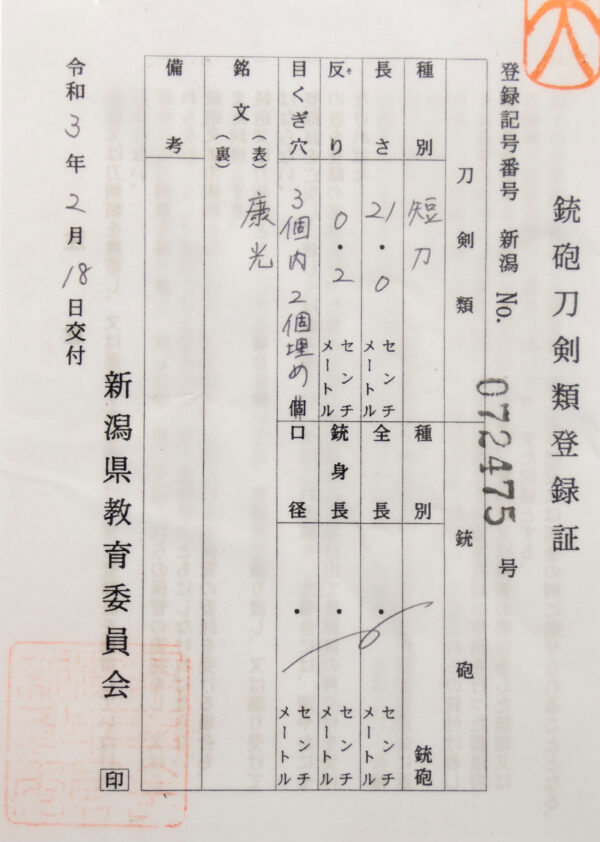 銃砲刀剣類登録証
登録記号番号 新潟 No. 072475 号
刀剣類
種別 短刀
長さ 21.0 センチメートル
反り 0.2 センチメートル
そ
目くぎ穴 3個内2個埋め 個
銘文 (表) 康光
(裏)
備考
銃砲
種別 銃砲
全長 . センチメートル
銃身長 . センチメートル
口径 . センチメートル
令和3年2月18日交付
新潟県教育委員会 印